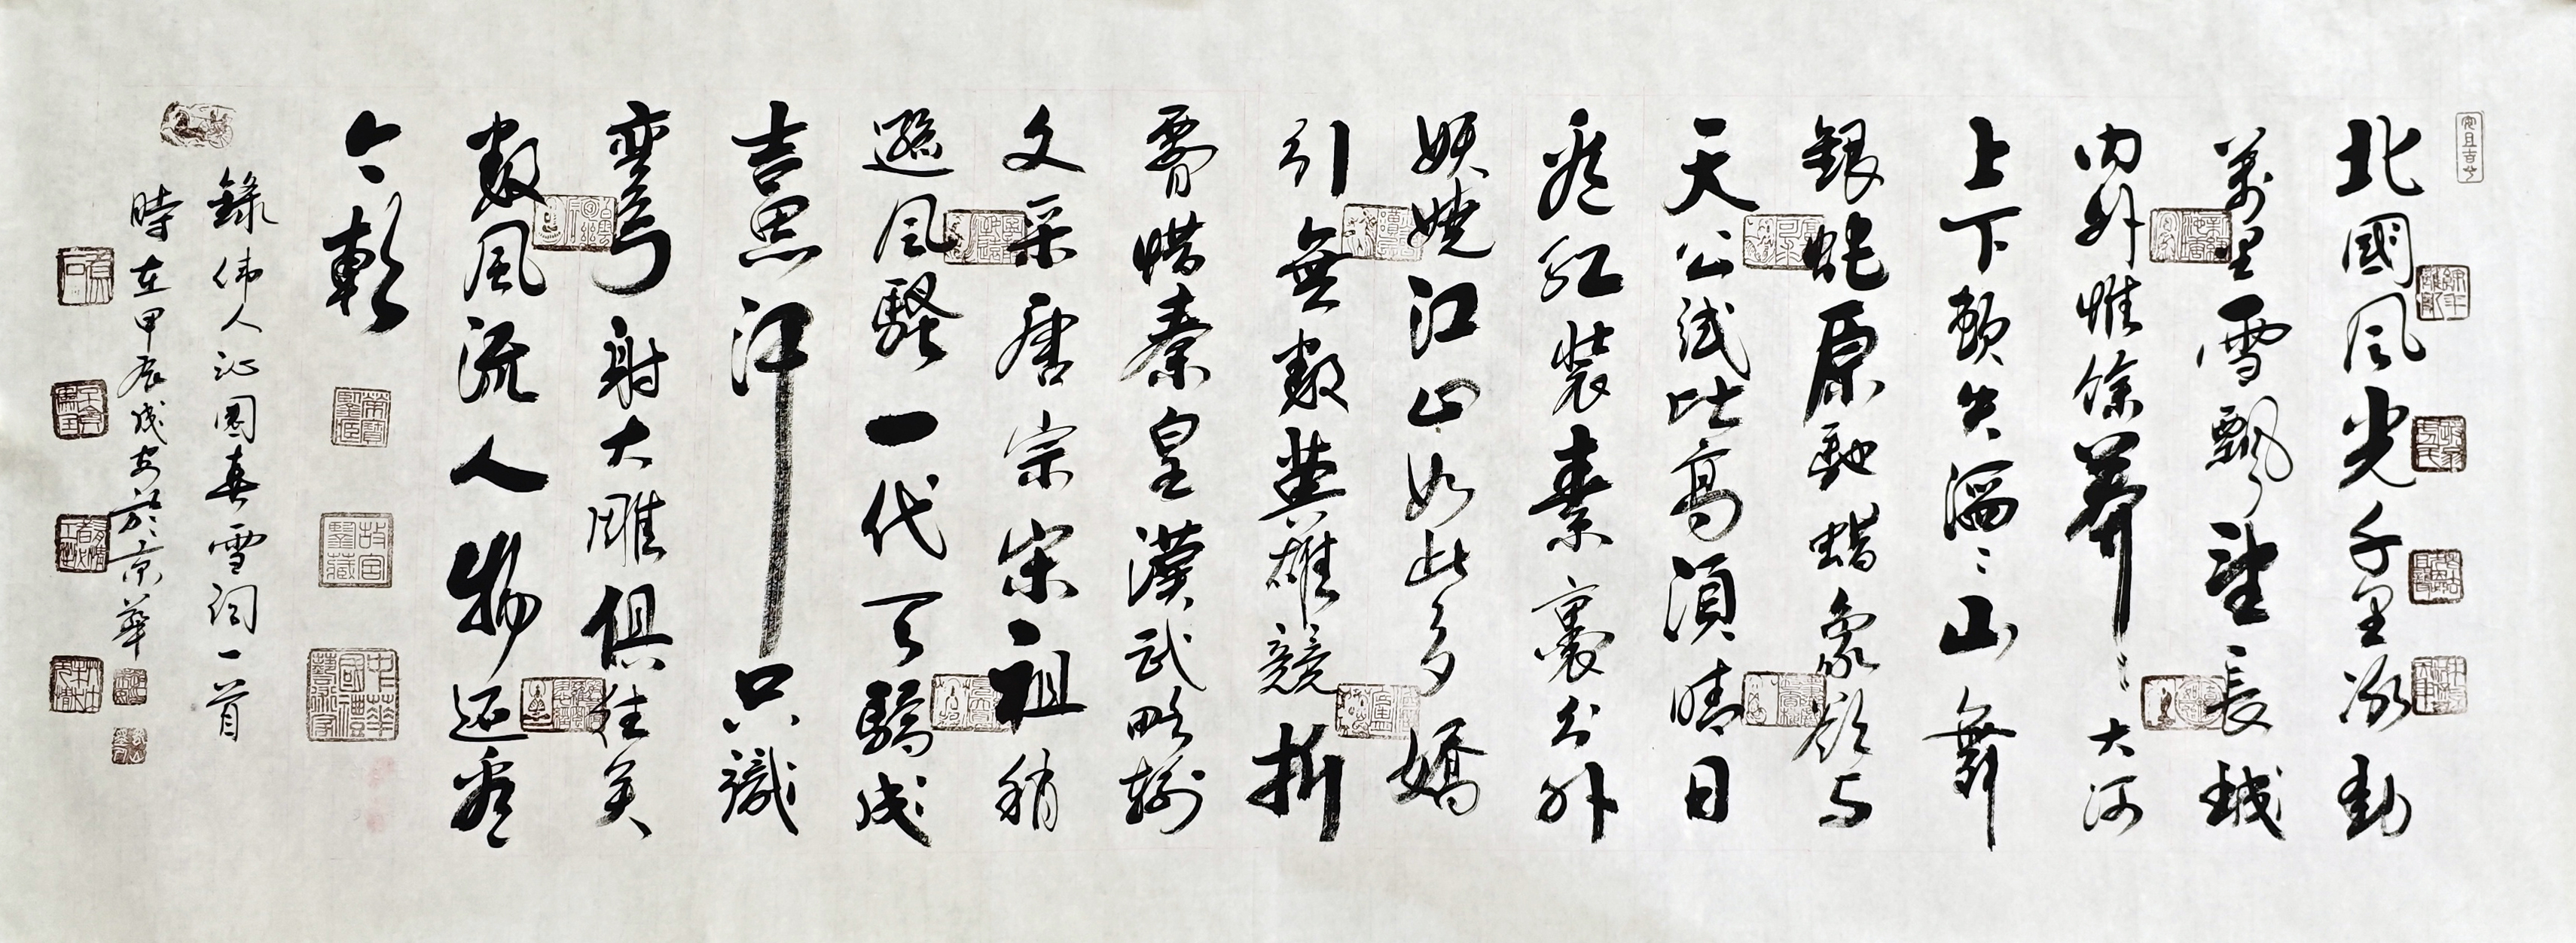 安且吉兮
北國风光千里冰封
萬里雪飘望長城
内外惟餘莽〻大河
上下頓失滔〻山舞
銀蛇原馳蜡象欲与
天公試比高須晴日
看红装素裹分外
妖娆江山如此多嬌
引無數英雄競折
腰惜秦皇漢武略输
文采唐宗宋祖稍
遜风騷一代天驕成
吉思汗只識
弯弓射大雕俱往矣
數風流人物还看
今朝
中華國禮藝術家
錄伟人沁園春雪词一首
時在甲辰歲於京華